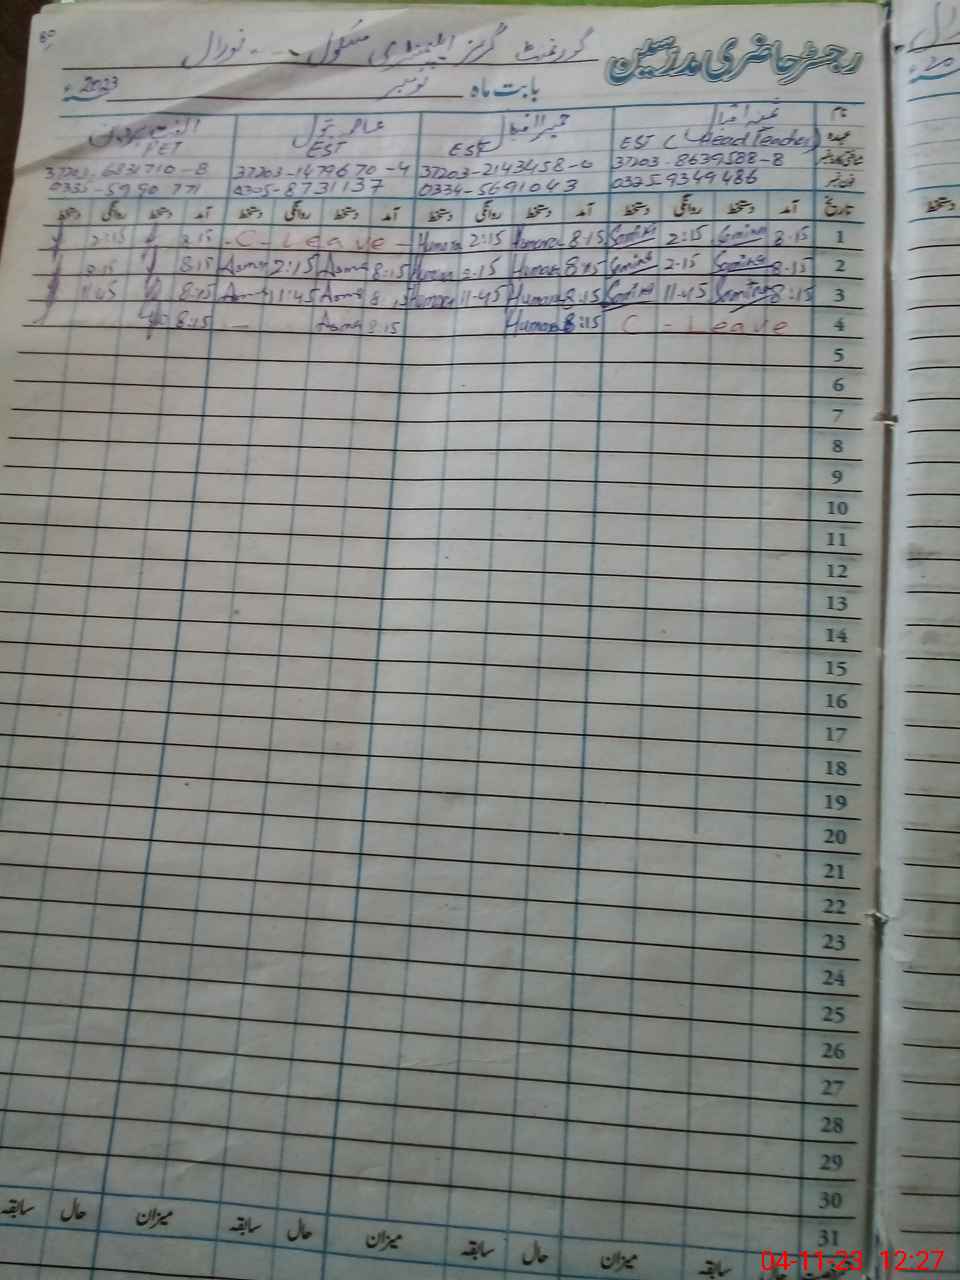 رجسٹر حاضری مدرسین گورنمنٹ گرلز ایلیمنٹری سکول نورال
بابت ماہ نومبر 2023ء
نام
عہدہ EST (Head Teacher) EST EST PET
37203-8639588-8 37203-2143458-0 37203-1479670-4 37203-6831710-8
0325-9349486 0334-5691043 0305-8731137 0335-5990771
تاریخ آمد دستخط روانگی دستخط آمد دستخط روانگی دستخط آمد دستخط روانگی دستخط آمد دستخط روانگی دستخط
1 8:15 Samina 2:15 Samina 8:15 Humara 2:15 Humara C - Leave 8:15 2:15
2 8:15 Samina 2:15 Samina 8:15 Humara 2:15 Humara 8:15 Asma 2:15 Asma 8:15 2:15
3 8:15 Samina 11:45 Samina 8:15 Humara 11:45 Humara 8:15 Asma 11:45 Asma 8:15 11:45
4 C - Leave 8:15 Humara 8:15 Asma 8:15
5
6
7
8
9
10
11
12
13
14
15
16
17
18
19
20
21
22
23
24
25
26
27
28
29
30
31
سابقہ میزان حال سابقہ میزان حال سابقہ میزان حال سابقہ
04-11-23 12:27